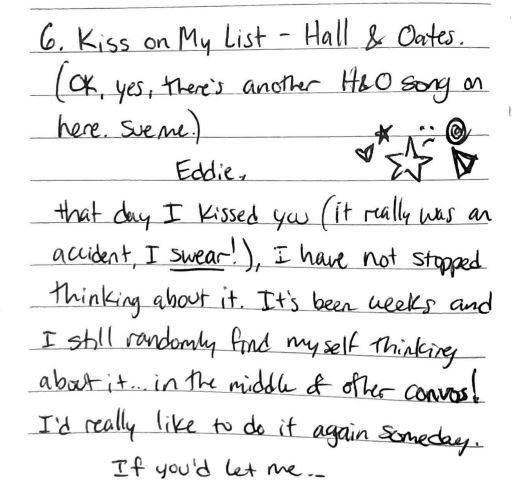 6. Kiss on My List - Hall & Oates.
(OK, yes, there's another H&O song on
here. Sue me.)
Eddie,
that day I kissed you (it really was an
accident, I swear!), I have not stopped
thinking about it. It's been weeks and
I still randomly find myself thinking
about it... in the middle of other convos!
I'd really like to do it again someday.
If you'd let me...